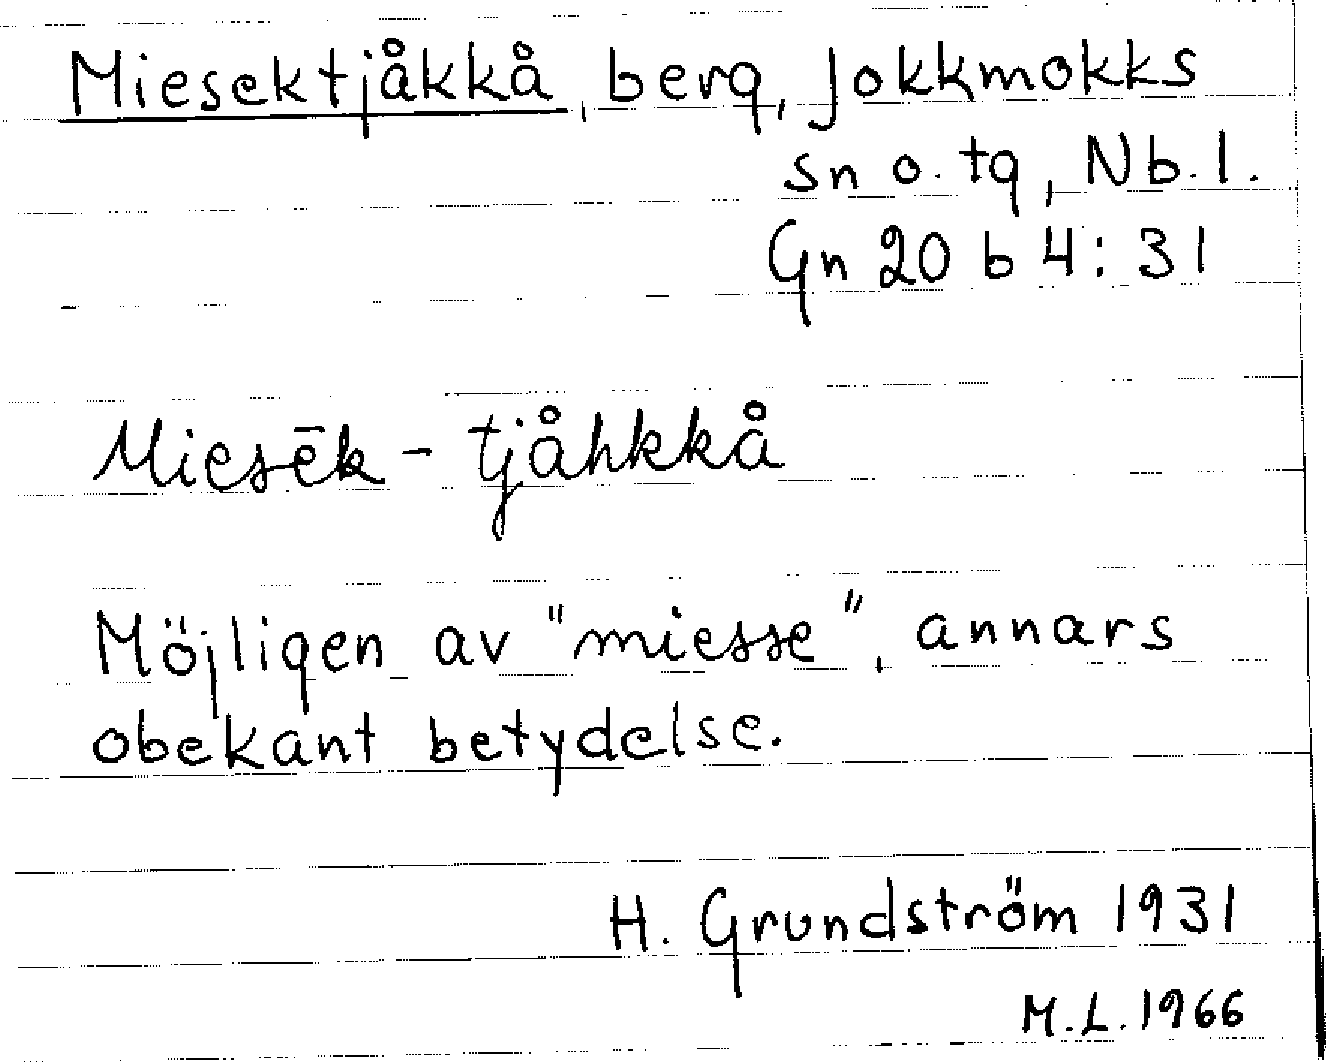 Miesektjåkkå, berg, Jokkmokks
sn o. tg, Nb. l.
Gn 20 b 4:31
Miesēk-tjåhkkå
Möjligen av "miesse", annars
obekant betydelse.
H. Grundström 1931
M.L. 1966